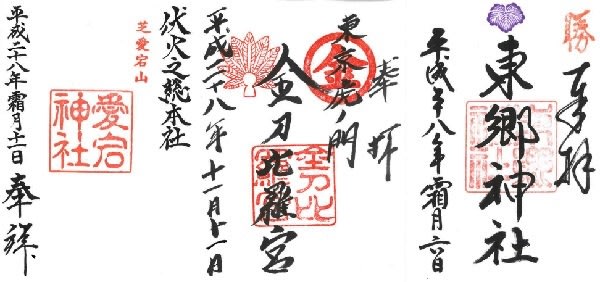 勝
奉拝
東郷神社
平成二十八年霜月六日
奉拝
東京虎ノ門
金
金刀比羅宮
金刀比
羅宮
平成二十八年十一月十一日
芝愛宕山
伏火之総本社
愛宕
神社
平成二十八年霜月十一日
奉拝